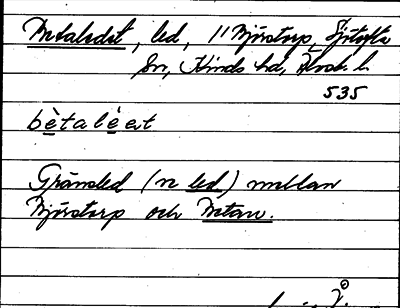 Metaledet, led, // Björstorp, Sjötofta
Sn, Kinds hd, Älvsb. l.
535
bètalèet
Gränsled (n led) mellan
Björstorp och Metan.